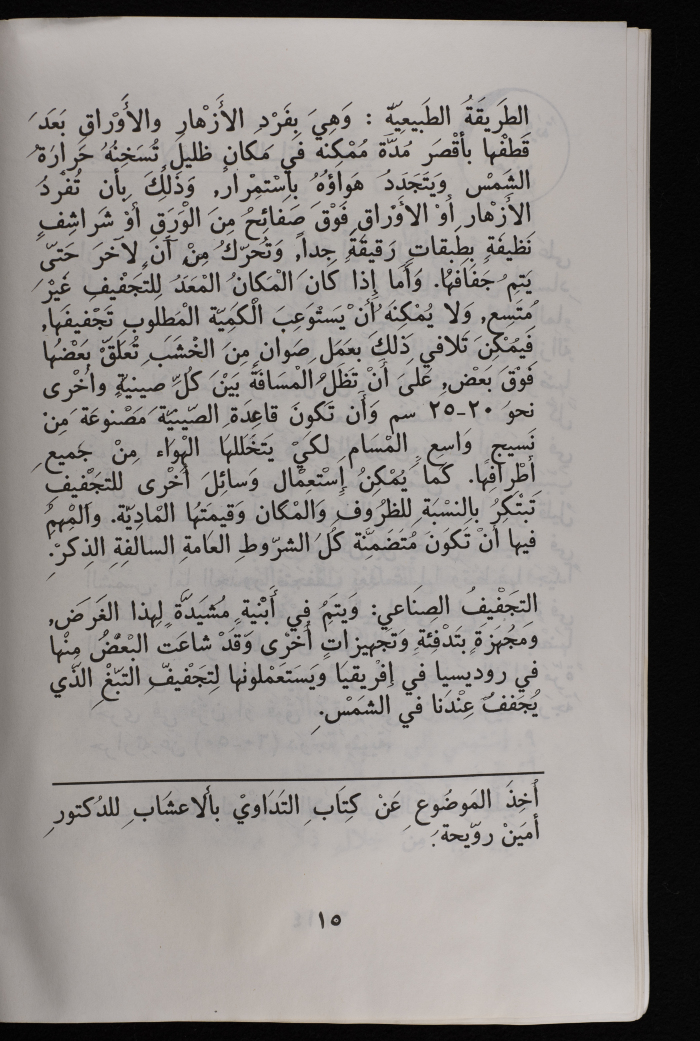 الطَريقَةُ الطَبيعيّة : وَهِيَ بِفَرْدِ الأَزْهارِ والأَوْراقِ بَعَدَ
قَطْفِها بأقْصَر مُدّة مُمْكِنه في مَكان ظليل تُسَخِنهُ حَرارَة
الشَمْس ويَتَجَدَدُ هَواؤهُ باسْتِمْرار, وَذَلِكَ بِأن تُفْرَدُ
الأزْهار أوْ الأوْراق فَوْقَ صَفائِح مِنَ الْوَرَق أوْ شَراشِفٍ
نَظيفةٍ بِطَبقاتٍ رَقيقَةٍ جِداً, وَتُحَرّكُ مِنْ آنٍ لآخَرَ حَتىّ
يَتِمُ جَفَافُها. وَأما إذا كانَ الْمَكانُ الْمَعَدُ لِلتَجْفيفِ غَيْرَ
مُتَسِعٍ, وَلا يُمْكِنَهُ أَنْ يَسْتَوعِبَ الْكَمِيّة الْمَطلوبِ تَجْفيفَها,
فَيمُكْنِ تَلافي ذِلكَ بعَمَلِ صَوانٍ مِنَ الْخْشَبِ تُعَلقّ بَعْضُها
فَوْقَ بَعْض, عَلىَ أَنْ تَظَلُ الْمسَافَةَ بَيْنَ كُلّ صينيةٍ واُخْرى
نحوَ ٢٠-٢٥ سم وَأَن تَكونَ قاعِدَة الصّينيّة مَصْنوعَة مِنْ
نَسيجٍ وَاسِعِ الْمْسَامِ لكَيْ يَتَخَللها الْهْوَاء مِنْ جَميعِ
أطْرافِها. كَما يُمْكِنُ إسْتعْمال وَسائِلَ أُخْرى للتجْفيفِ
تَبْتَكِرُ بالنسْبَةِ للظُروفِ والمَكانِ وَقيمَتَها المْادِيّة. وَالمُهِمُ
فيها أنْ تَكونَ مُتَضَمنِّة كُلَ الشرّوطِ العامَةِ السالفةِ الذِكرِّ.
التجَفْيفُ الصِناعي: وَيتَمُ في أَبْنيةٍ مُشيَدَّةٍ لِهذا الغَرَض,
وَمَجُهزَةٍ بتَدْفئةٍ وَتَجهيزاتٍ أُخْرَى وَقَدْ شاعَت البْعَضُ مِنْها
في روديسيا في إفْريقيَا وَيَستَعمْلونهْا لِتجَفْيفّ التبّغِ الذَّي
يُجَففُ عِنْدَنا في الشَمْسِ.
أُخِذَ المَوضُوعِ عَنْ كِتَابِ التدَاويْ بألاعشَابِ للدُكتورِ
أمَينْ روّيحة.
١٥